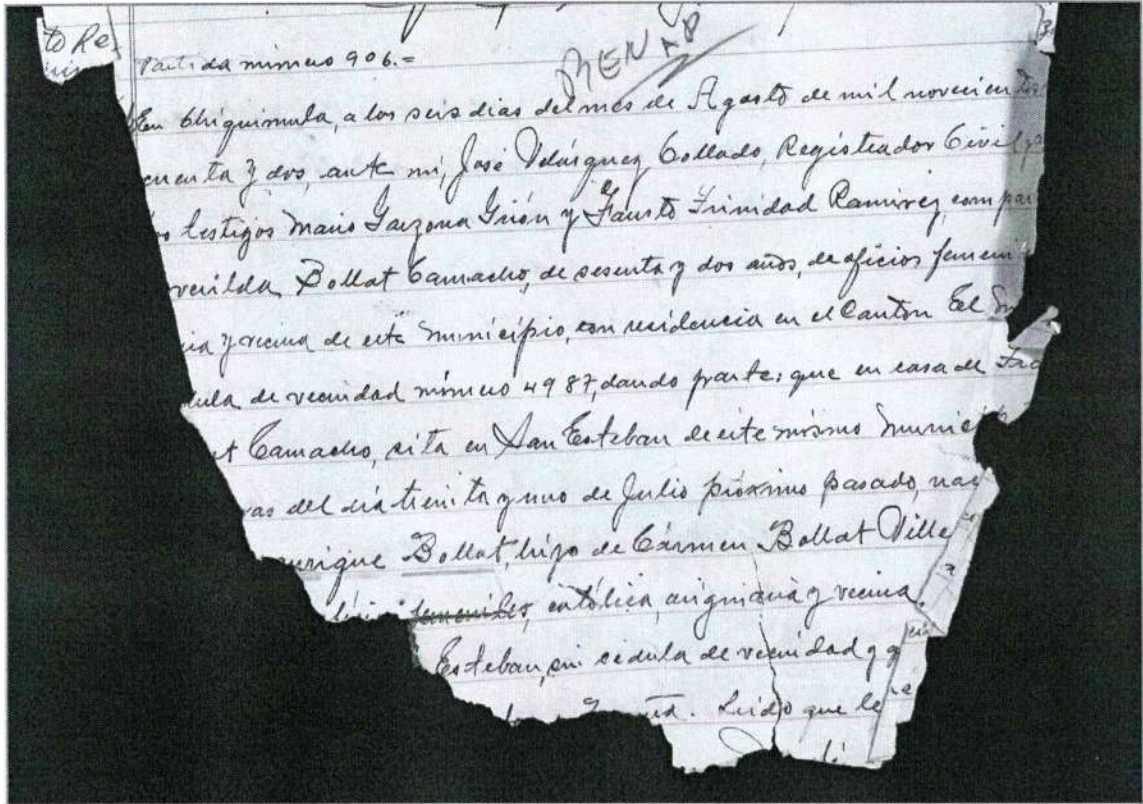 to Re
RENAP
Partida número 906.=
En Chiquimula, a los seis dias del mes de Agosto de mil novecientos
cuenta y dos, ante mi, José Velásquez Collado, Registrador Civil y
testigos Mario Garzona Girón y Fausto Trinidad Ramirez, compar
venilda Bollat Camacho, de sesenta y dos años, de oficios femeni
ia y vecina de este Municipio, con residencia en el Canton El
dula de vecindad número 4987, dando parte: que en casa de
at Camacho, sita en San Esteban de este mismo Munici
ras del dia treinta y uno de Julio próximo pasado, nac
nrique Bollat, hijo de Cármen Bollat Ville
femeniles, católica, originaria y vecina
Esteban, sin cédula de vecindad y q
Leido que le